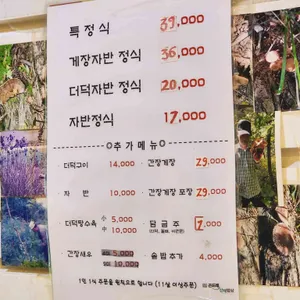 특정식 39,000
게장자반 정식 36,000
더덕자반 정식 20,000
자반정식 17,000
추가메뉴
· 더덕구이 14,000 · 간장게장 29,000
· 자 반 10,000 · 간장게장 포장 29,000
· 더덕탕수육 小 5,000 大 10,000 · 담금주 7,000
· 간장새우 小 5,000 大 10,000 · 솥밥추가 4,000
1인 1식 주문을 원칙으로 합니다 (11살 이상주문)